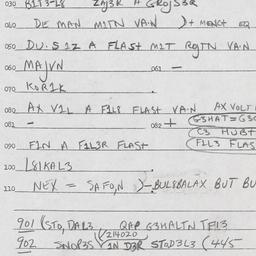 030 BIT3-L8 ZAJ3R A GROJS3R
040 DE MAN MITN VA.N )+ MENCH EQ
050 DU.S 1Z A FLASH MIT ROTN VA.N
060 MAJVN 061 —
070 KOR1K
080 AX V1L A F1L8 FLASH VA.N AX VOLT
081 - 082 + G3HAT=G3
C3 HUBT
090 F1N A F1L3R FLASH F1L3 FLAS
100 L81KAL3
110 NEX = SAFO,N )-BULSBALAX BUT BU
901 (STO, DAR3 QAP G3HALTN TF13
214020
902 SNOP3S 1N D3R STOD3L3 (445